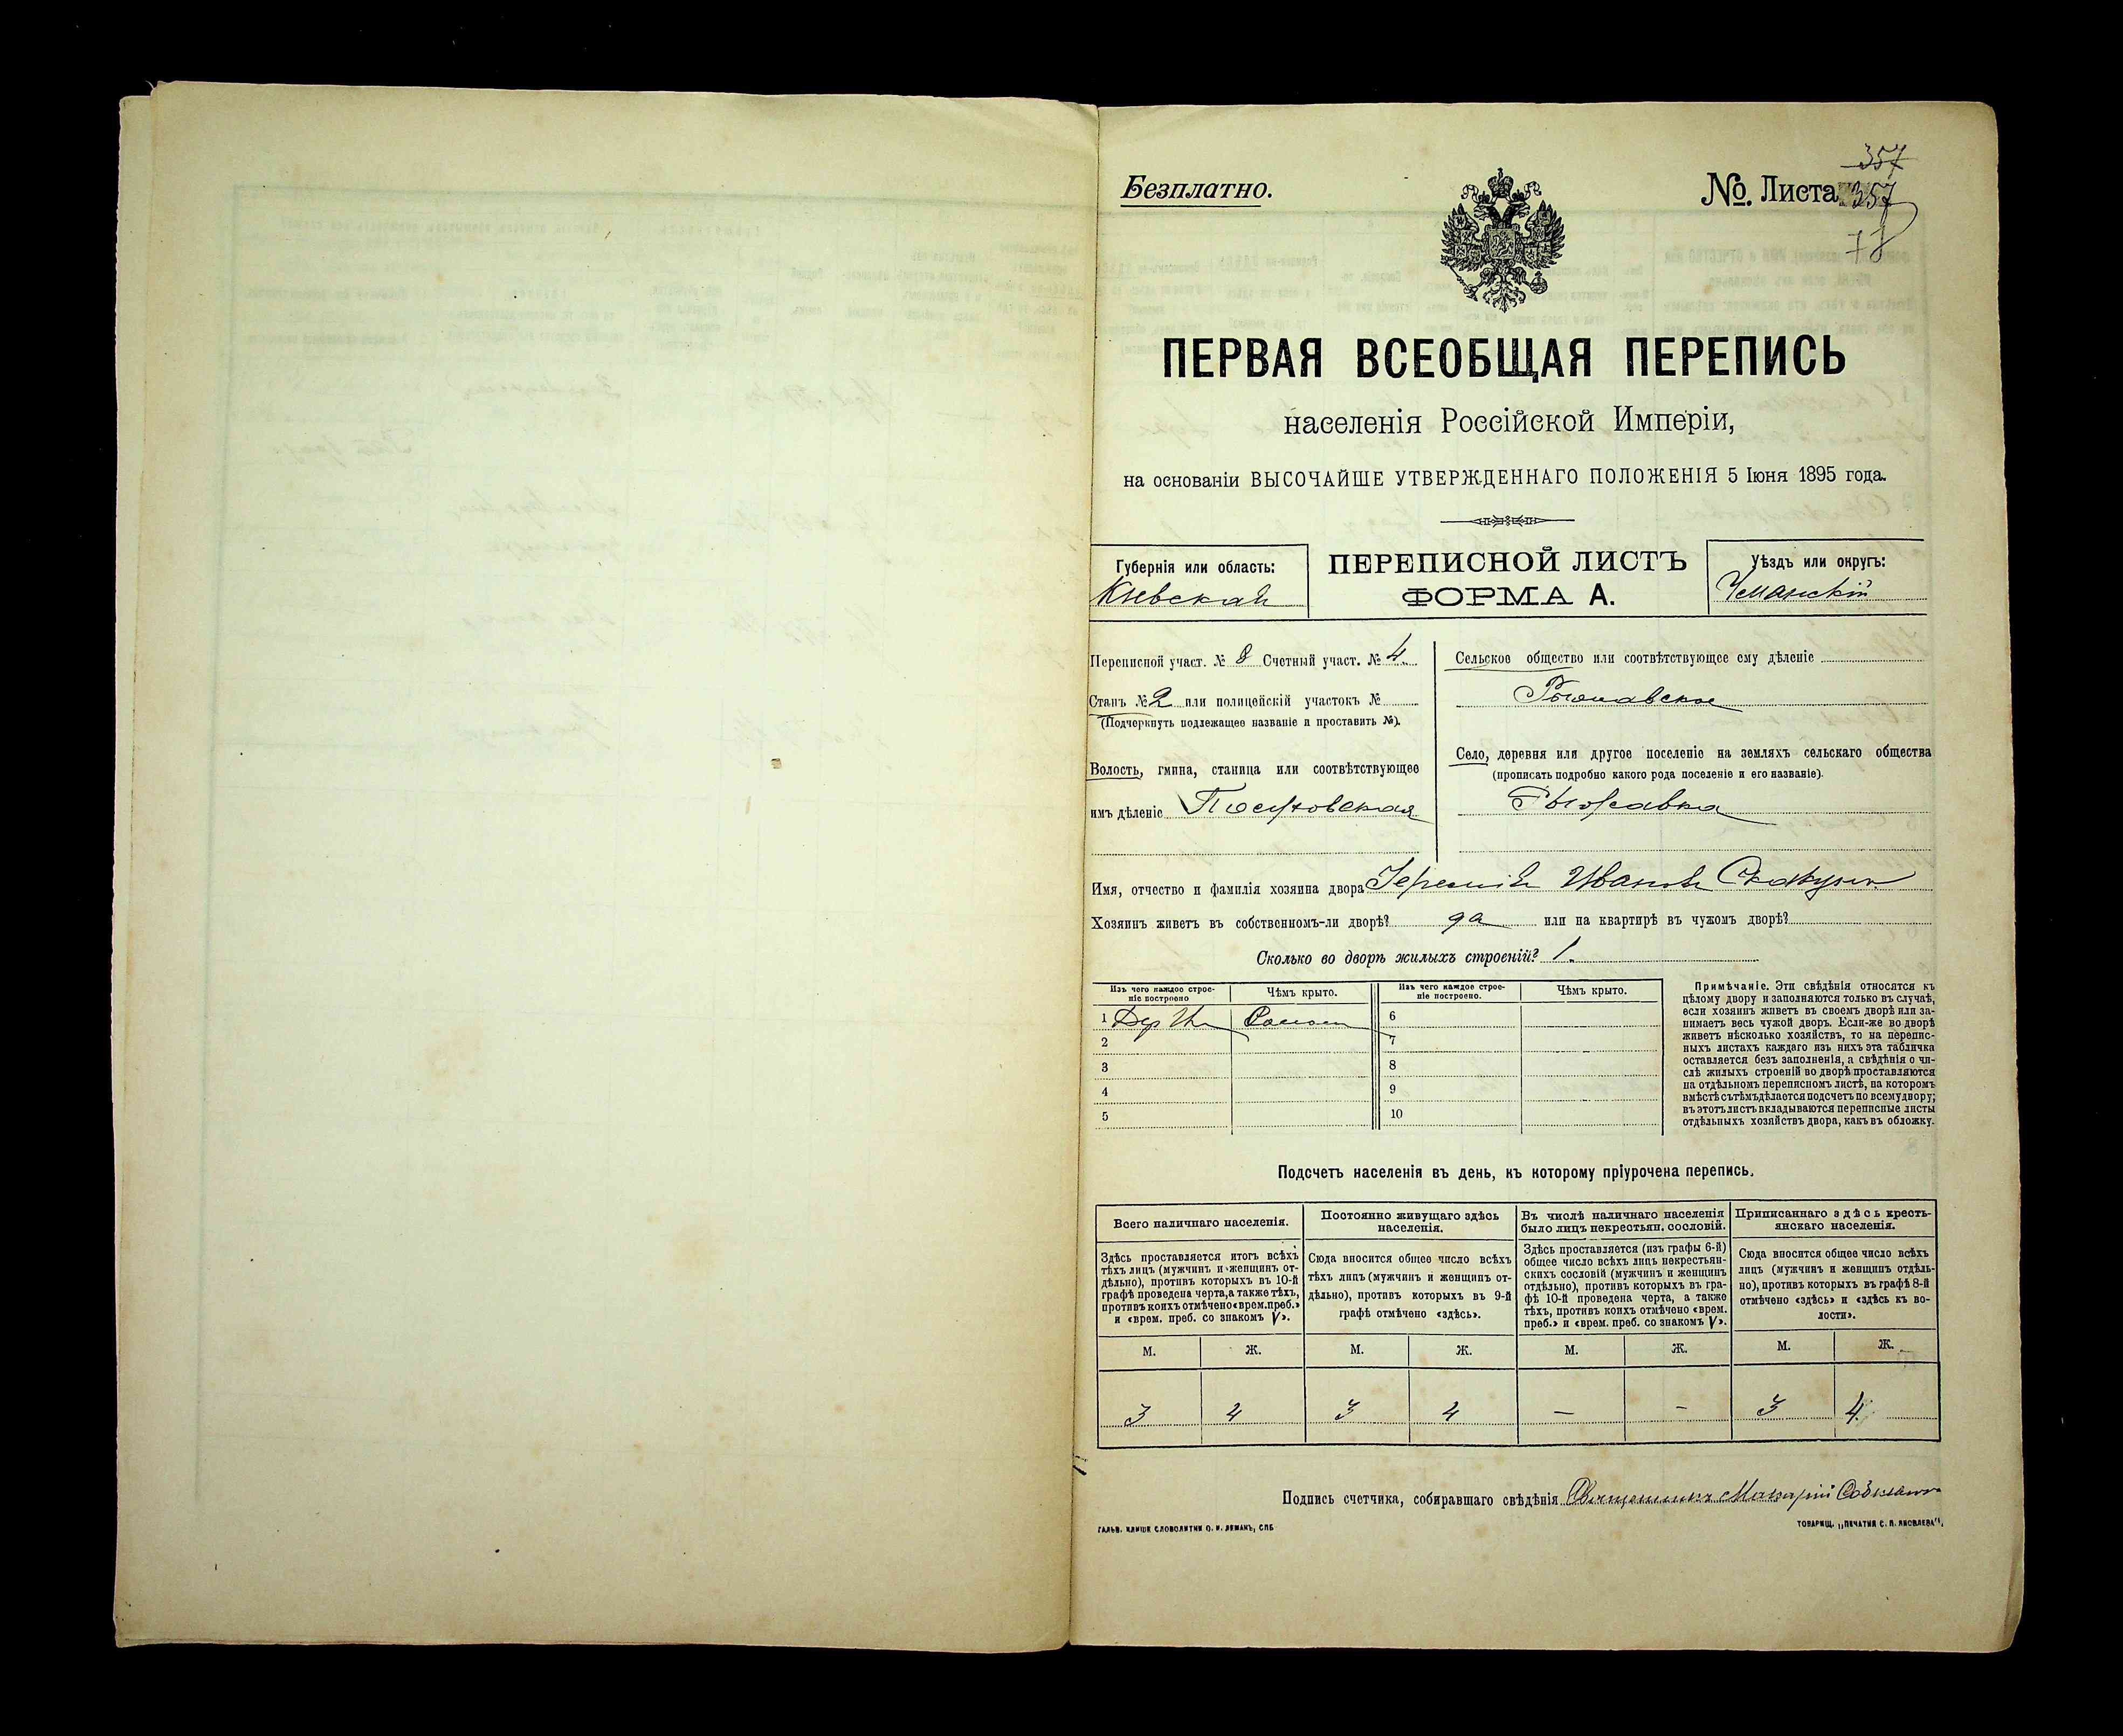 Безплатно.
№. Листа 357
357
78
ПЕРВАЯ ВСЕОБЩАЯ ПЕРЕПИСЬ
населенія Россійской Имперіи,
на основаніи ВЫСОЧАЙШЕ УТВЕРЖДЕННАГО ПОЛОЖЕНІЯ 5 Іюня 1895 года.
Губернія или область:
Кіевская
ПЕРЕПИСНОЙ ЛИСТЪ
ФОРМА А.
Уѣздъ или округъ:
Уманскій
Переписной участ. № 8 Счетный участ. № 4
Станъ № 2 или полицейскій участокъ №
(Подчеркнуть подлежащее названіе и проставить №).
Волость, гмина, станица или соотвѣтствующее
имъ дѣленіе Посуховская
Сельское общество или соотвѣтствующее ему дѣленіе
Рыжавское
Село, деревня или другое поселеніе на земляхъ сельскаго общества
(прописать подробно какого рода поселеніе и его названіе).
Рыжавка
Имя, отчество и фамилія хозяина двора Іеремій Ивановъ
Хозяинъ живетъ въ собственномъ-ли дворѣ? да или на квартирѣ въ чужомъ дворѣ?
Сколько во дворѣ жилыхъ строеній? 1.
Изъ чего каждое строе-
ніе построено
Чѣмъ крыто.
Изъ чего каждое строе-
ніе построено.
Чѣмъ крыто.
1 Соломой
6
2
7
3
8
4
9
5
10
Примѣчаніе. Эти свѣдѣнія относятся къ
цѣлому двору и заполняются только въ случаѣ,
если хозяинъ живетъ въ своемъ дворѣ или за-
нимаетъ весь чужой дворъ. Если-же во дворѣ
живетъ нѣсколько хозяйствъ, то на перепис-
ныхъ листахъ каждаго изъ нихъ эта табличка
оставляется безъ заполненія, а свѣдѣнія о чи-
слѣ жилыхъ строеній во дворѣ проставляются
на отдѣльномъ переписномъ листѣ, на которомъ
вмѣстѣ съ тѣмъ дѣлается подсчетъ по всему двору;
въ этотъ листъ вкладываются переписные листы
отдѣльныхъ хозяйствъ двора, какъ въ обложку.
Подсчетъ населенія въ день, къ которому пріурочена перепись.
Всего наличнаго населенія.
Здѣсь проставляется итогъ всѣхъ
тѣхъ лицъ (мужчинъ и женщинъ от-
дѣльно), противъ которыхъ въ 10-й
графѣ проведена черта, а также тѣхъ,
противъ коихъ отмѣчено «врем. преб.»
и «врем. преб. со знакомъ V».
Постоянно живущаго здѣсь
населенія.
Сюда вносится общее число всѣхъ
тѣхъ лицъ (мужчинъ и женщинъ от-
дѣльно), противъ которыхъ въ 9-й
графѣ отмѣчено «здѣсь».
Въ числѣ наличнаго населенія
было лицъ некрестьян. сословій.
Здѣсь проставляется (изъ графы 6-й)
общее число всѣхъ лицъ некрестьян-
скихъ сословій (мужчинъ и женщинъ
отдѣльно), противъ которыхъ въ гра-
фѣ 10-й проведена черта, а также
тѣхъ, противъ коихъ отмѣчено «врем.
преб.» и «врем. преб. со знакомъ V».
Приписаннаго здѣсь кресть-
янскаго населенія.
Сюда вносится общее число всѣхъ
лицъ (мужчинъ и женщинъ отдѣль-
но), противъ которыхъ въ графѣ 8-й
отмѣчено «здѣсь» и «здѣсь къ во-
лости».
М. Ж. М. Ж. М. Ж. М. Ж.
3 4 3 4 — — 3 4
Подпись счетчика, собиравшаго свѣдѣнія Священникъ Макарій
ГАЛЬВ. КЛИШЕ СЛОВОЛИТНИ О. И. ЛЕМАНЪ, СПБ
ТОВАРИЩ. „ПЕЧАТНЯ С. П. ЯКОВЛЕВА“.